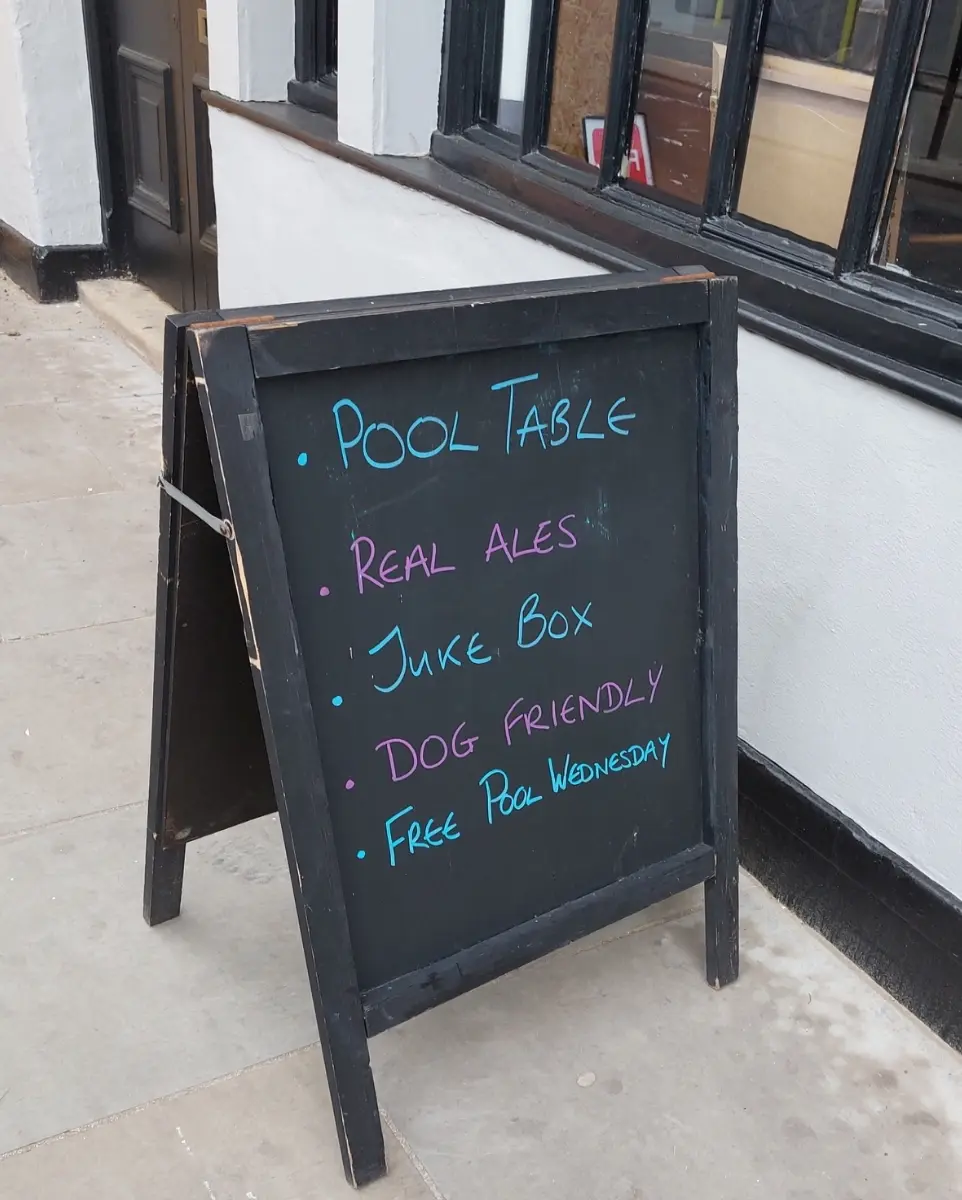 • POOL TABLE
• REAL ALES
• JUKE BOX
• DOG FRIENDLY
• FREE POOL WEDNESDAY